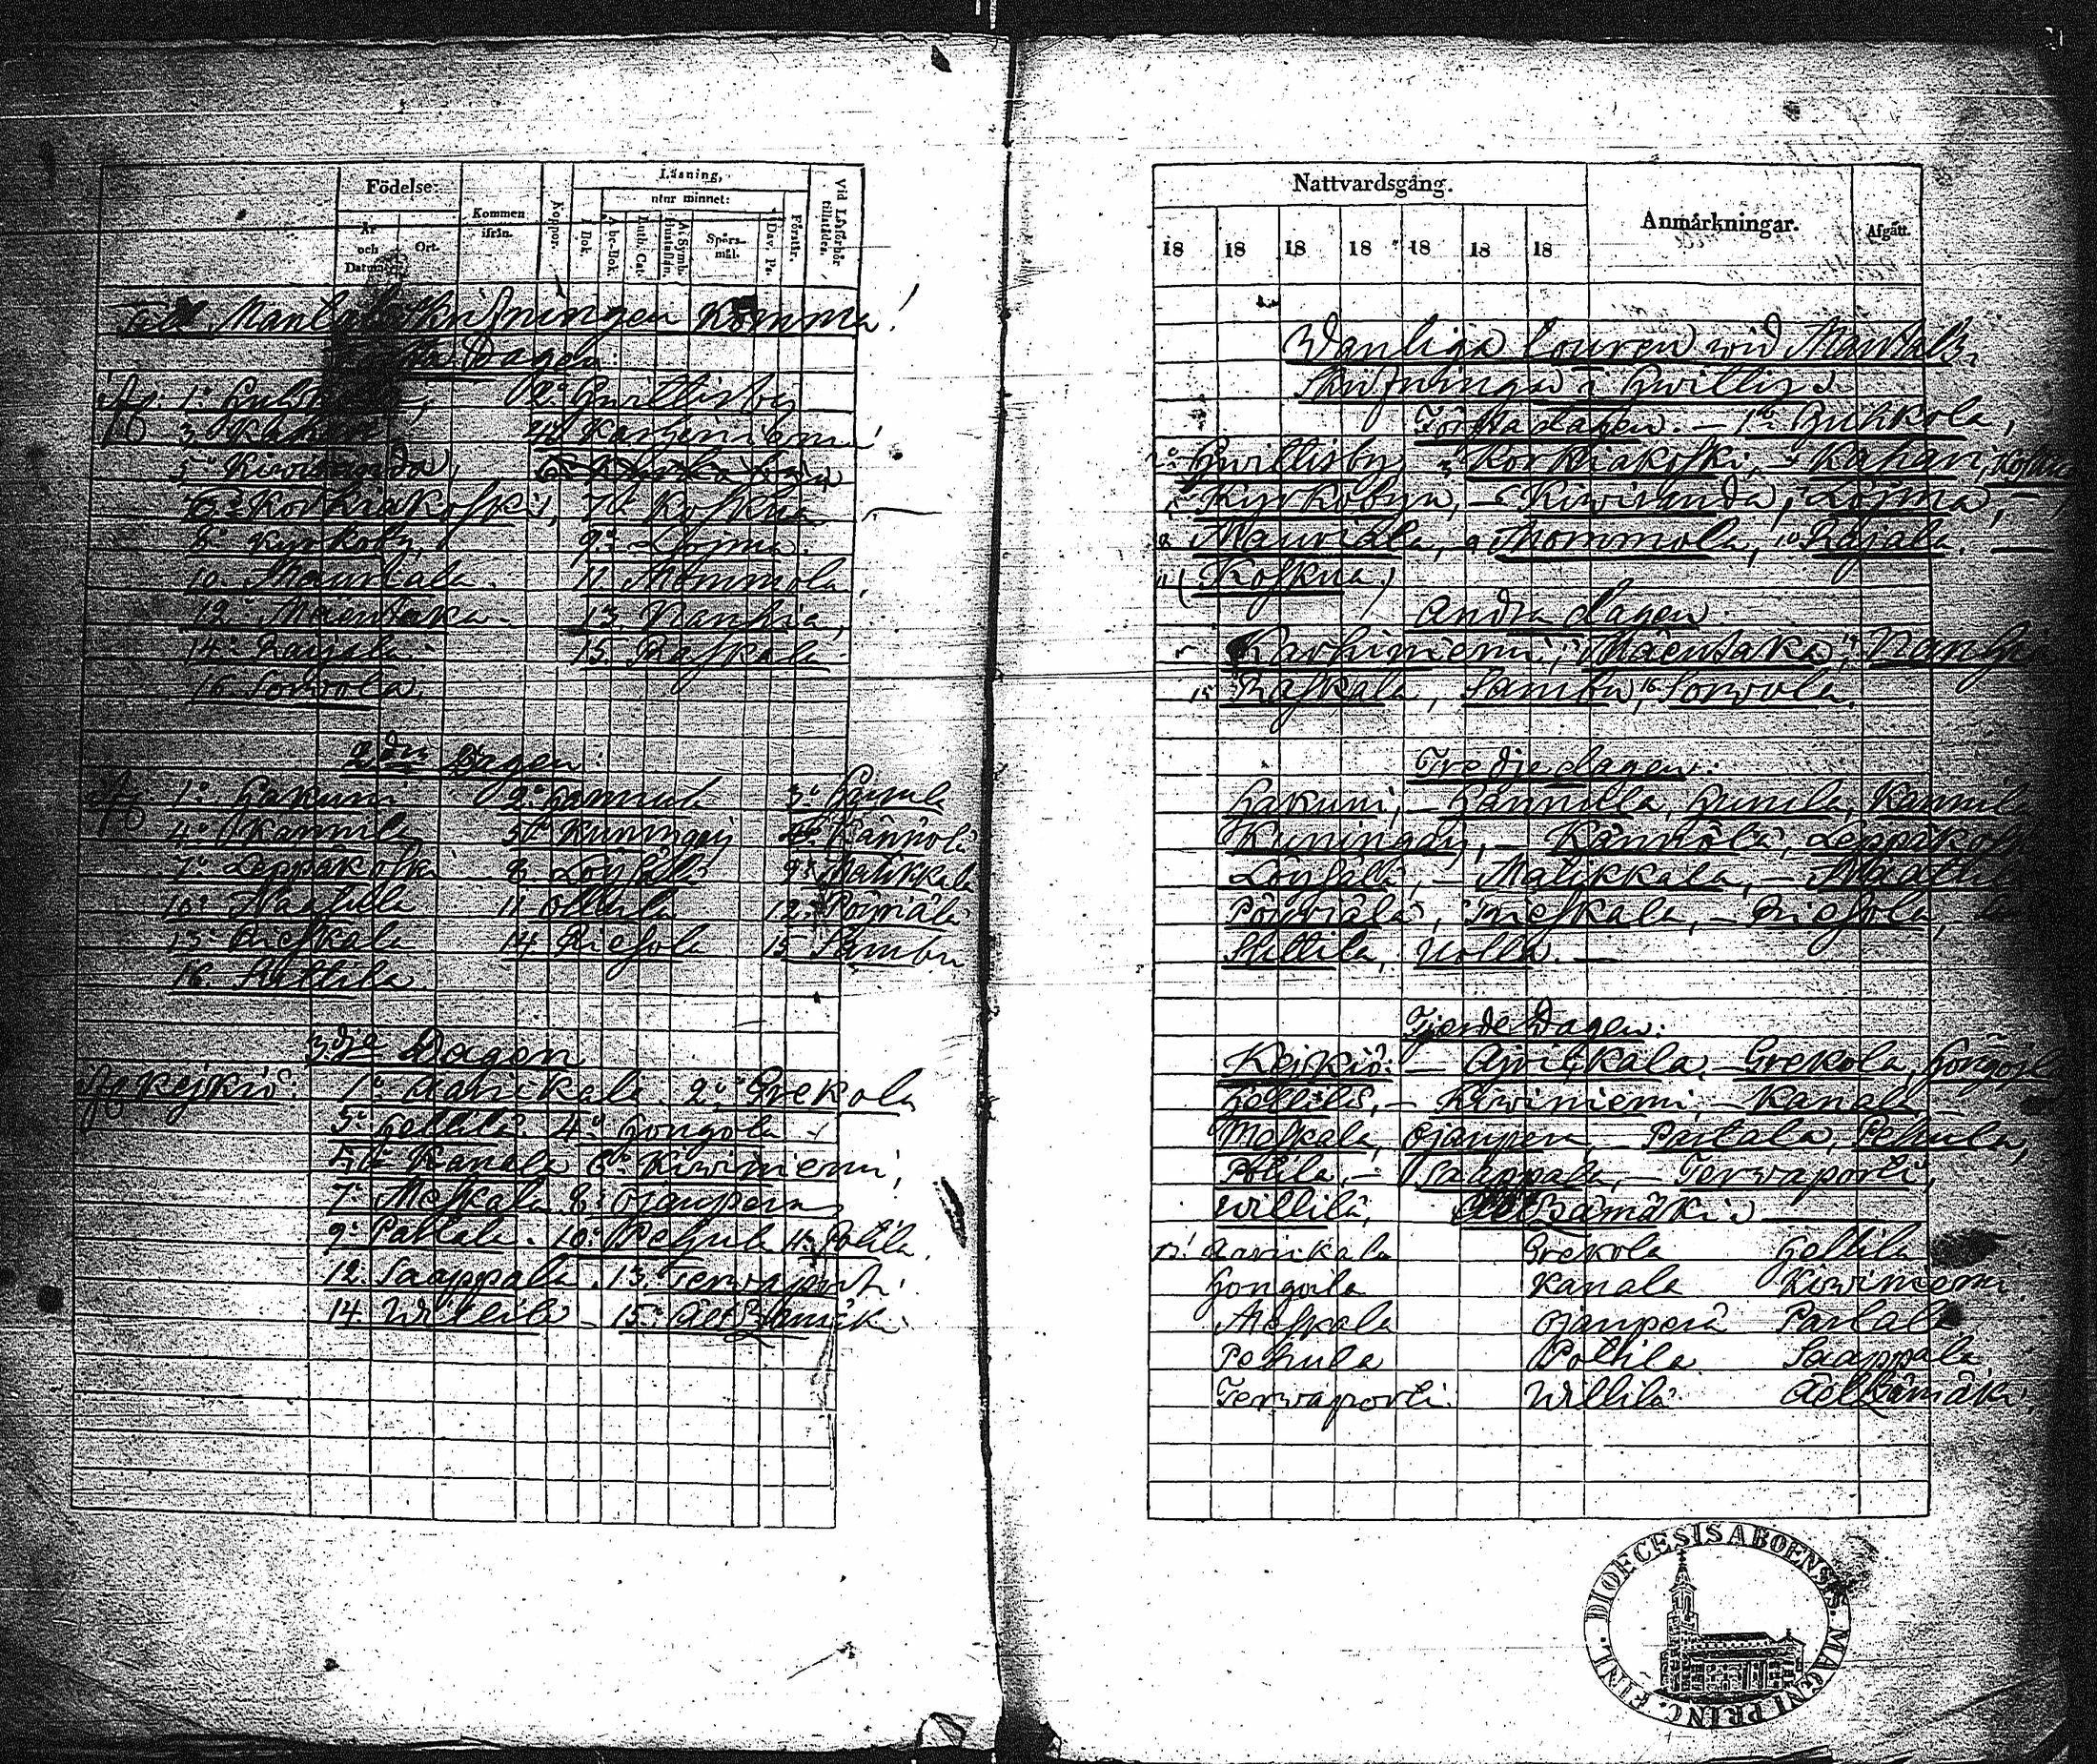 Födelse:
År och Datum.
Ort.
Kommen ifrån.
Koppor.
Läsning,
utur minnet:
I Bok.
Abc-Bok.
Luth. Cat.
Hustaflan.
A. Symb.
Spörsmål.
Dav. Ps.
Förstår.
Vid Läsförhör tillstädes.
Till Mantalsskrifningen komma!
Dagen
2: Huittisby
3: Kahari 4: Karhiniemi
5: Kiwiranda,
6: Korkiakoski, 7: Koskua
8: Kyrkoby, 9: Lojma.
10. Mauriala. 11. Mommola,
12. Mäentaka. 13. Nanhia,
14: Raijala. 15. Raskala
16. Sorvola.
2dra Dagen:
1: Hakuni 2: Hannula 3: Hunila
4: Kannila 5: Kuningas 6: Kännölä
7: Leppäkoski 8: Löysälä 9: Matikkala
10: Naatula 11. Ollila 12: Pöyriälä
13: Rieskala 14. Riesola 15. Sambu
16. Suttila
3dje Dagen
Kejkiö: 1: Aurikala 2: Grekola
3: Hellilä. 4: Hongola
5: Kanala 6: Kiwiniemi,
7: Meskala 8: Ojanperä
9: Partala. 10: Pehula 11. Potila.
12. Saappala. 13. Terwaporti.
14. Willilä 15: Äetzämäki
Nattvardsgång.
Anmärkningar.
Afgått.
18 18 18 18 18 18 18
Wanliga touren wid Mantals
skrifningen i Hwittis.
Första dagen. – 1: Huhkola,
2: Hwittisby, 3 Korkiakoski, Kahari,
Kyrkobyn, – Kiwiranda, Lojma, –
8 Mauriala, – 9 Mommola, 10 Rajala. –
11 (Koskua)
Andra dagen
Karhiniemi, Mäentaka, 14 Nanhia
15 Raskala, Sambu, 16 Sorvola.
Tredje dagen:
Hakuni, – Hannula, Hunila, Kannila
Kuningas, – Kännölä, Leppäkoski
Löysälä, – Matikkala, – Naatula
Pöyriälä, Rieskala, – Riesola,
Suttila, Nolla. –
Fjerde Dagen:
Kejkiö: – Ajrikkala, – Grekola, Hongola
Hellilä, – Kiwiniemi, – Kanala –
Meskala, Ojanperä, – Partala, Pehula,
Potila, – Saappala, – Terwaporti,
Willilä, Äetzämäki –
Aurikala Grekola Hellila
Hongoila Kanala Kiwiniemi
Meskala Ojanperä Partala
Pehula Potila Saappala
Terwaporti. Willilä Äetzämäki
DIOECESIS ABOENSIS. MAGNI PRINC. FINL.